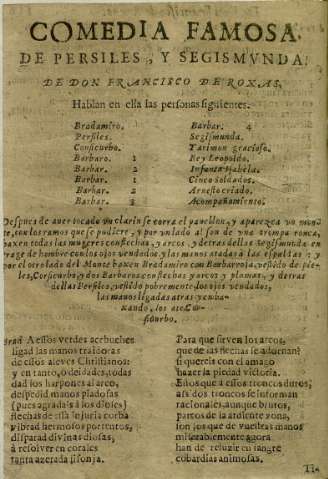 COMEDIA FAMOSA.
DE PERSILES, Y SEGISMVNDA.
DE DON FRANCISCO DE ROXAS.
Hablan en ella las personas siguientes.
Bradamiro.
Persiles.
Corsicurbo.
Barbaro. 1
Barbar. 2
Barbar. 1
Barbar. 2
Barbar. 3
Barbar. 4
Segismunda.
Tarimon gracioso.
Rey Leopoldo.
Infanta Isabela.
Cinco soldados.
Arnesto criado.
Acompañamiento.
Despues de auer tocado vn clarin se corra el pauellon, y aparezca vn monte
te, con los ramos que se pudiere, y por vn lado al son de vna trompa ronca,
baxen todas las mugeres con flechas, y arcos, y detras dellas Segismunda en
trage de hombre con los ojos vendados, y las manos atadas à las espaldas; y
por el otro lado del Monte baxen Bradamiro con Barbarroja, vestido de pie-
les, Corsicurbo, y dos Barbaros con flechas y arcos y plumas, y detras
dellas Persiles, vestido pobremente los ojos vendados,
las manos ligadas atras y
xando, los ate Cor-
sicurbo.
Brad A essos verdes acebuches
ligad las manos traidoras
de essos aleves Christianos:
y en tanto, ò deidades, todas
dad los harpones al arco,
despedid manos piadosas
(pues agradais à los dioses)
flechas de essa injuria corba
vibrad hermosos portentos,
disparad divinas diosas,
à resolver en corales
tanta azerada lisonja.
Para que sirven los arcos,
que de las flechas se adornan?
si quereis con el amago
hazer la piedad victoria.
Ellos que à essos troncos duros,
assi dos troncos se informan
racionales, aunque brutos,
partos de la ardiente zona,
son los que de vuestras manos
miserablemente agora
han de reduzir en sangre
cobardias animosas.